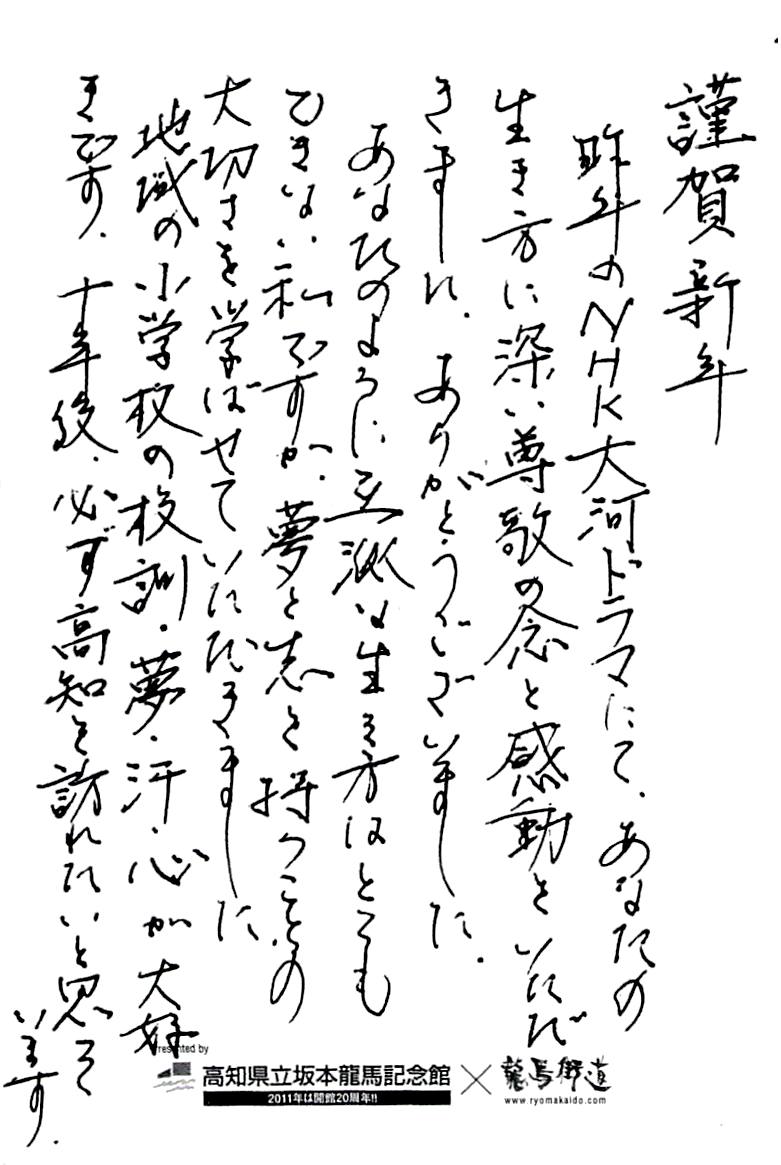 謹賀新年
昨年のNHK大河ドラマにて、あなたの
生き方に深い尊敬の念と感動をいただ
きました。ありがとうございました。
あなたのように立派な生き方はとても
できない私ですが、夢と志を持つことの
大切さを学ばせていただきました。
地域の小学校の校訓・夢・汗・心が大好
きです。十年後、必ず高知を訪れたいと思って
います。
Presented by
高知県立坂本龍馬記念館×龍馬街道
2011年は開館20周年!!
www.ryomakaido.com